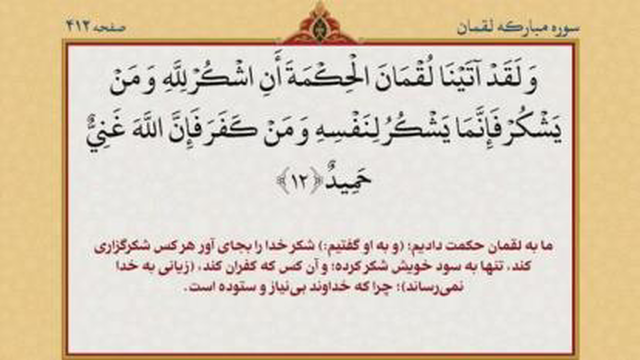 سوره مبارکه لقمان
صفحه ۴۱۲
وَ لَقَدْ آتَيْنَا لُقْمَانَ الْحِكْمَةَ أَنِ اشْكُرْ لِلَّهِ وَ مَنْ
يَشْكُرْ فَإِنَّمَا يَشْكُرُ لِنَفْسِهِ وَ مَنْ كَفَرَ فَإِنَّ اللَّهَ غَنِيٌّ
حَمِيدٌ ﴿۱۲﴾
ما به لقمان حکمت دادیم؛ (و به او گفتیم:) شکر خدا را بجای آور هر کس شکرگزاری
کند، تنها به سود خویش شکر کرده؛ و آن کس که کفران کند، (زیانی به خدا
نمی‌رساند)؛ چرا که خداوند بی‌نیاز و ستوده است.